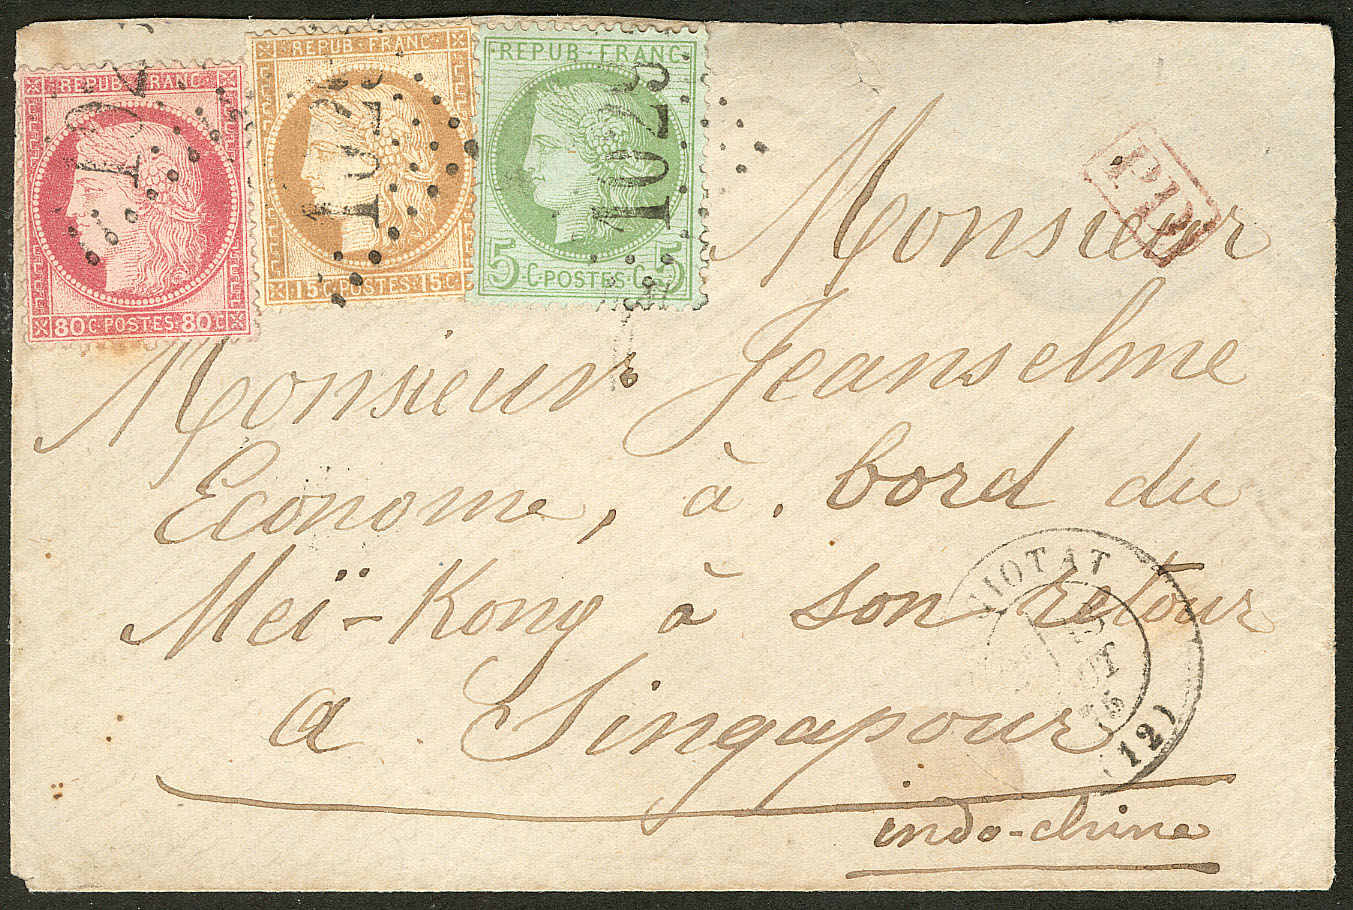 REPUB·FRANC
80C·POSTES·80C
REPUB·FRANC
1028
15C·POSTES·15C
REPUB·FRANC
1028
5·C·POSTES·C·5
PD
Monsieur
Monsieur Jeanselme
Econome, à bord du
Meï-Kong à son retour
a Singapour
indo-chine
CIOTAT
75
(12)